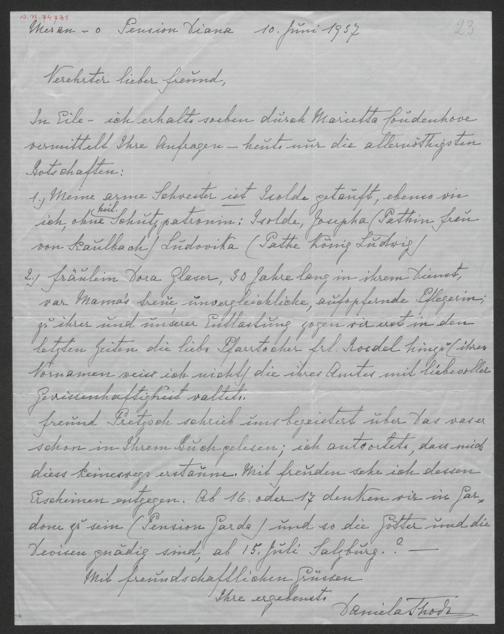 23
Meran-o Pension Diana 10. Juni 1937
Verehrter lieber Freund,
In Eile - ich erhalte soeben durch Marietta Coudenhove
vermittelt Ihre Anfragen - heute nur die allernöthigsten
Botschaften:
1.) Meine arme Schwester ist Isolde getauft, ebenso wie
ich, ohne Schutzpatronin: Isolde, Josepha (Pathin Frau
von Kaulbach) Ludovika (Pathe König Ludwig)
2.) Fräulein Dora Glaser, 30 Jahre lang in ihrem Dienst,
war Mamas treue, unvergleichliche, aufopfernde Pflegerin;
zu ihrer und unserer Entlastung zogen wir erst in den
letzten Zeiten die liebe Pfarrtochter Frl. hinzu (ihren
Vornamen weiss ich nicht) die ihres Amtes mit liebevoller
Gewissenhaftigkeit waltet.
Freund Pretzsch schrieb uns begeistert über das was er
schon in Ihrem Buch gelesen; ich antwortete, dass mich
diess keineswegs erstaune. Mit Freuden sehe ich dessen
Erscheinen entgegen. Ab 16. oder 17 denken wir in Gar-
done zu sein (Pension Garda) und so die Götter und die
Devisen gnädig sind, ab 15. Juli Salzburg.? -
Mit freundschaftlichen Grüssen
Ihre ergebenste
Daniela Thode